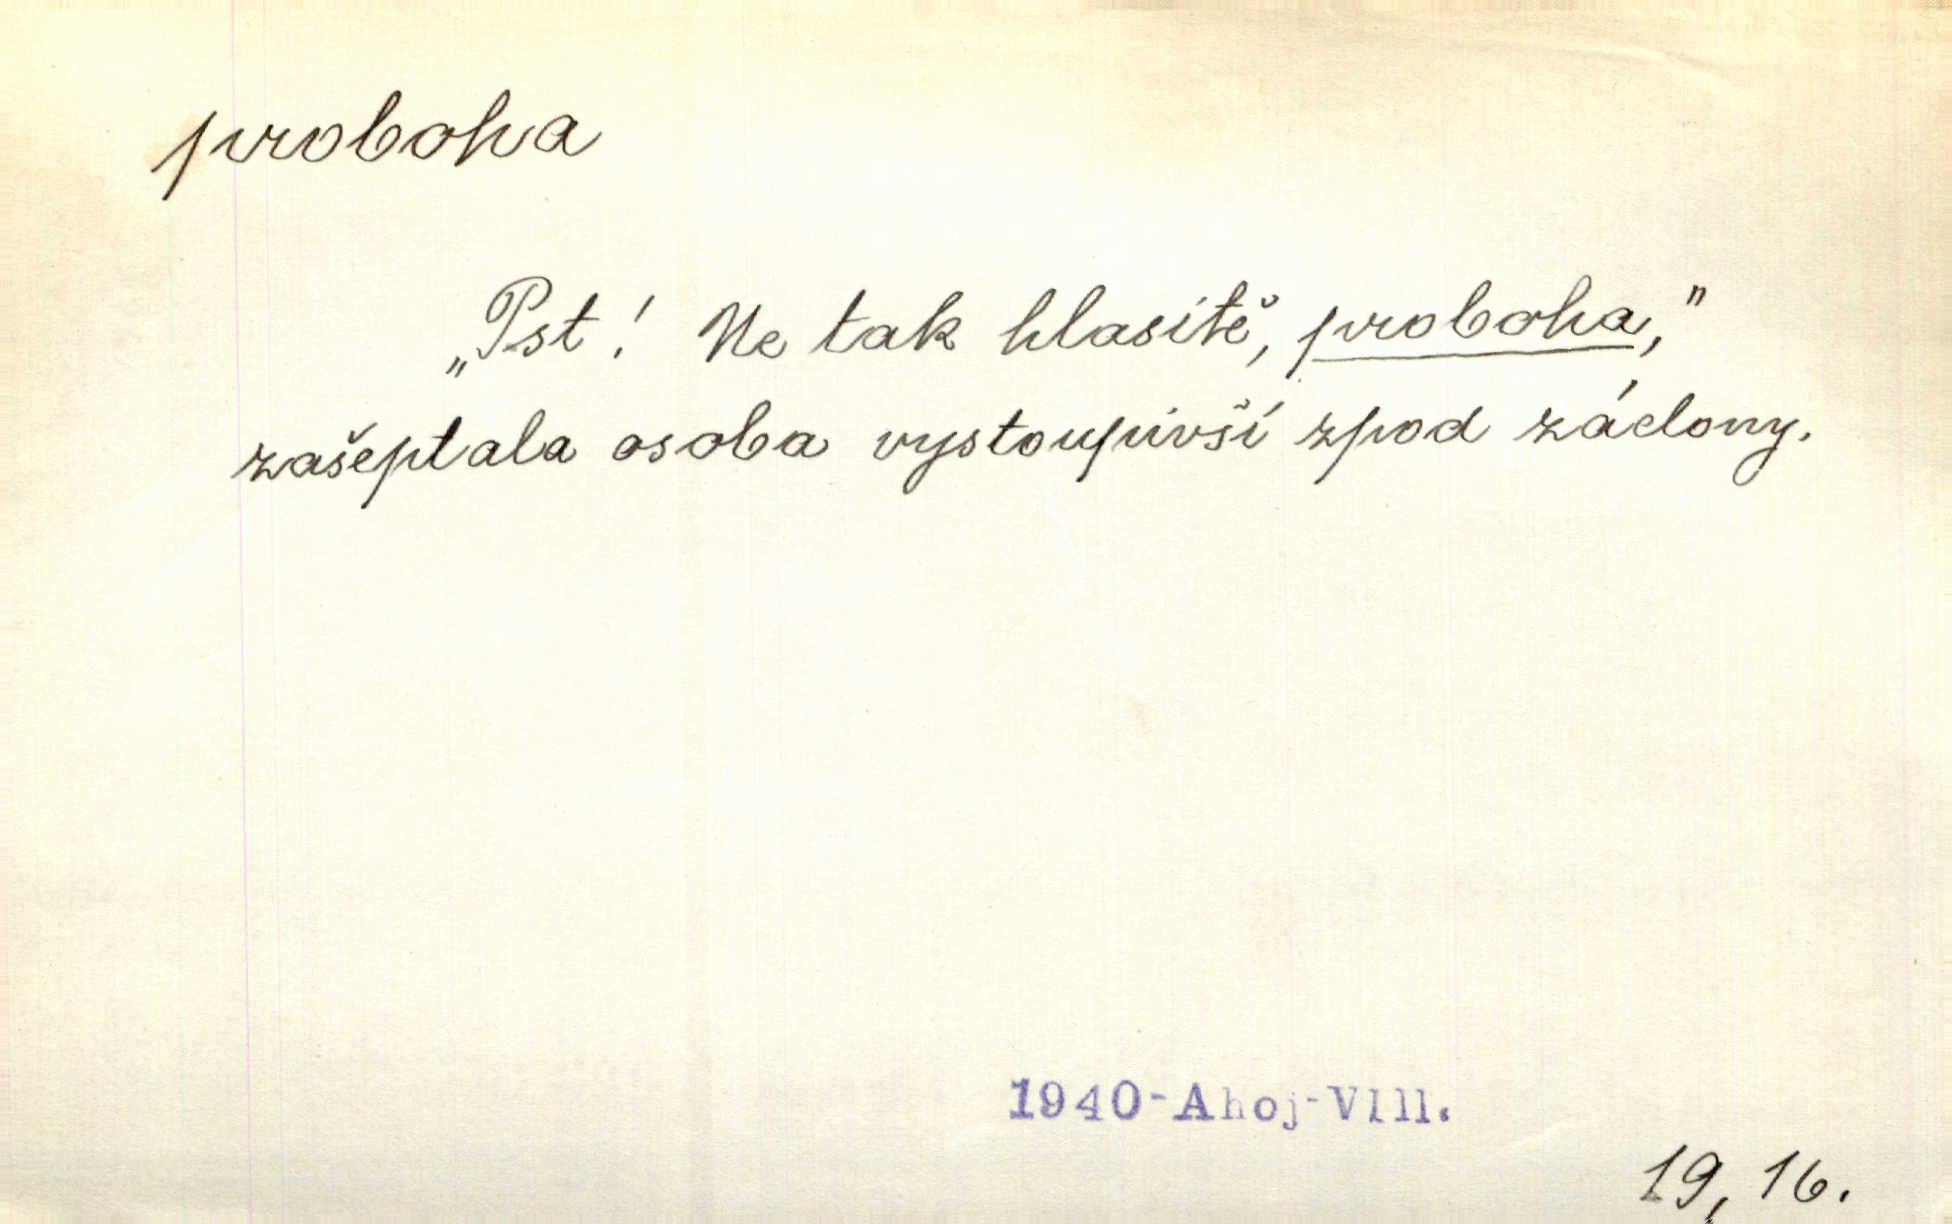 proboha
„Pst! Ne tak hlasitě, proboha,"
zašeptala osoba vystoupivší zpod záclony.
1940-Ahoj-VIII.
19, 16.